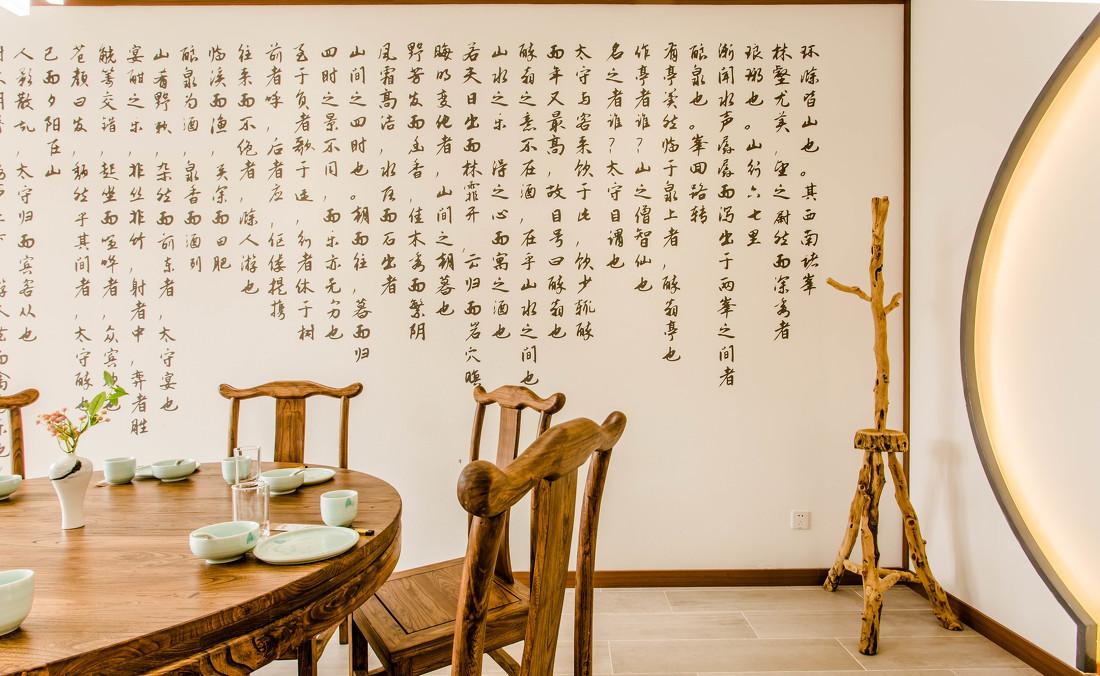 环滁皆山也。其西南诸峯
林壑尤美,望之蔚然而深秀者
琅琊也。山行六七里
渐闻水声潺潺而泻出于两峯之间者
酿泉也。峯回路转
有亭翼然临于泉上者,醉翁亭也
作亭者谁?山之僧智仙也
名之者谁?太守自谓也
太守与客来饮于此,饮少辄醉
而年又最高,故自号曰醉翁也
醉翁之意不在酒,在乎山水之间也
山水之乐,得之心而寓之酒也
若夫日出而林霏开,云归而岩穴暝
晦明变化者,山间之朝暮也
野芳发而幽香,佳木秀而繁阴
风霜高洁,水落而石出者
山间之四时也。朝而往,暮而归
四时之景不同,而乐亦无穷也
至于负者歌于途,行者休于树
前者呼,后者应,伛偻提携
往来而不绝者,滁人游也
临溪而渔,溪深而鱼肥
酿泉为酒,泉香而酒洌
山肴野蔌,杂然而前陈者,太守宴也
宴酣之乐,非丝非竹,射者中,弈者胜
觥筹交错,起坐而喧哗者,众宾欢也
苍颜白发,颓然乎其间者,太守醉也
已而夕阳在山
人影散乱,太守归而宾客从也